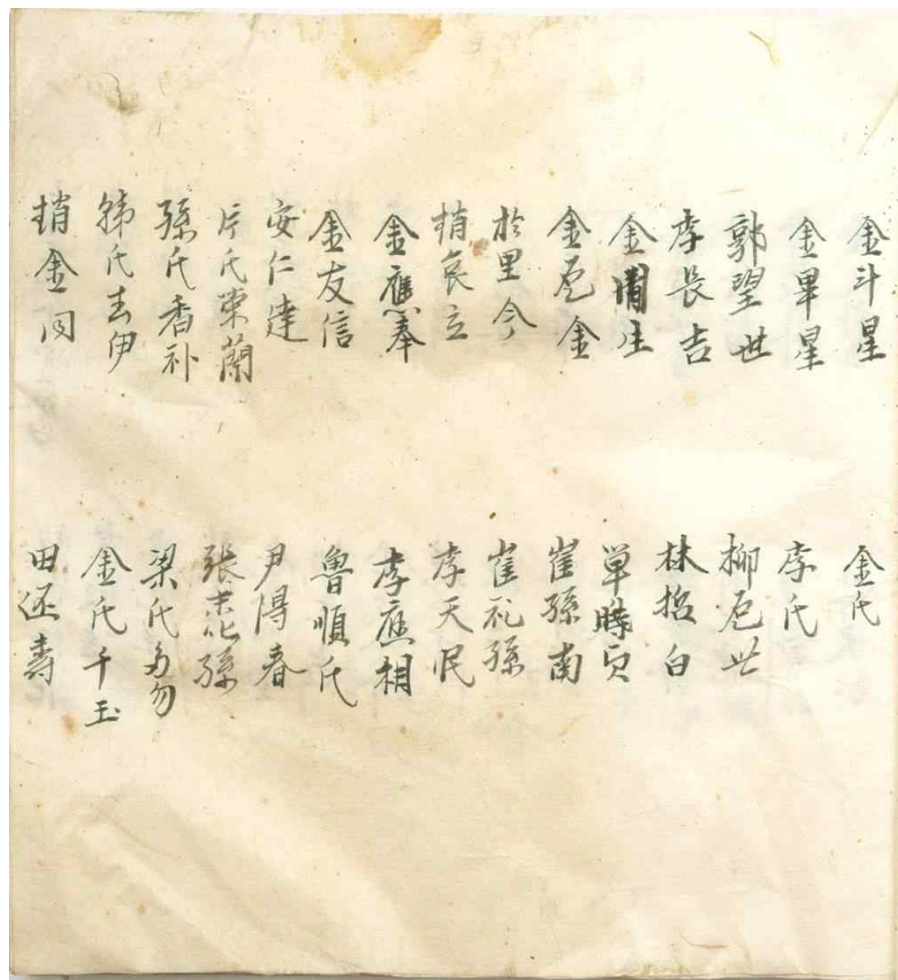 金斗星
金畢星
郭望世
李長吉
金生
金金
於里今
哀立
金應奉
金友信
安仁達
片氏東蘭
孫氏香补
韩氏去伊
金同
金氏
李氏
柳世
林哲白
單時
崔孫南
崔礼孫
李天民
李應相
魯順氏
尹得春
張孫
梁氏勿
金氏千玉
田壽